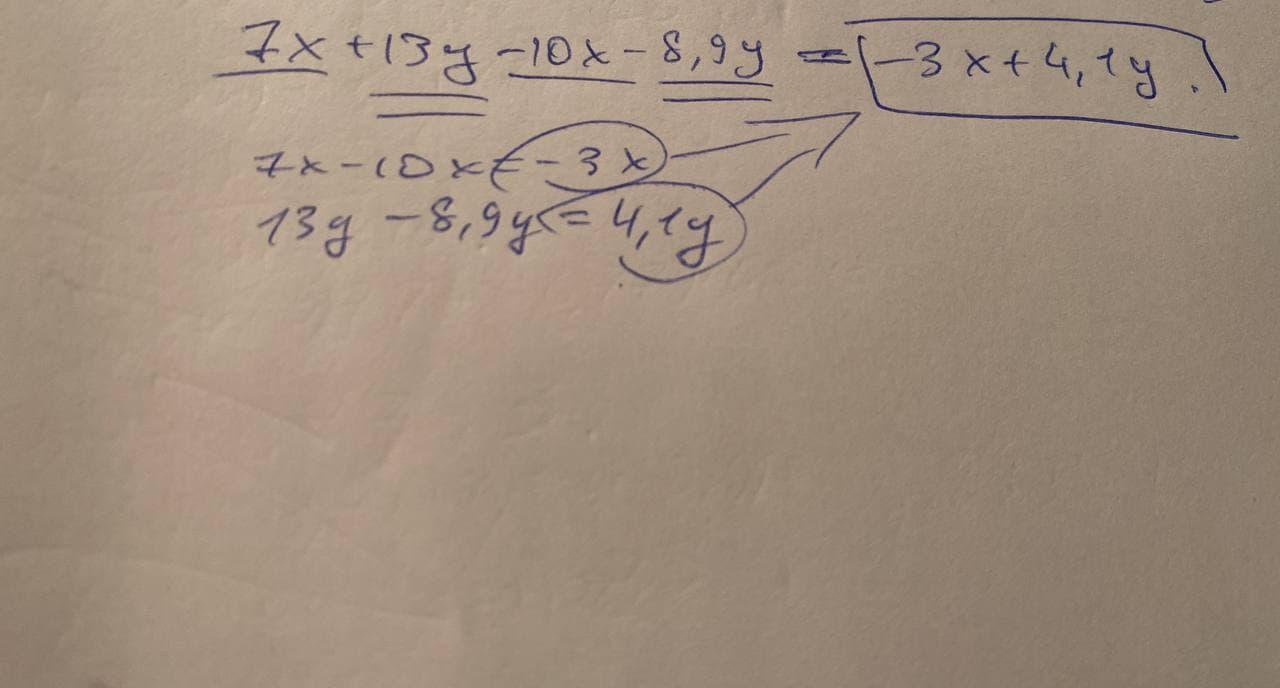 7x + 13y - 10x - 8,9y = -3x + 4,1y.
7x - 10x = -3x
13y - 8,9y = 4,1y